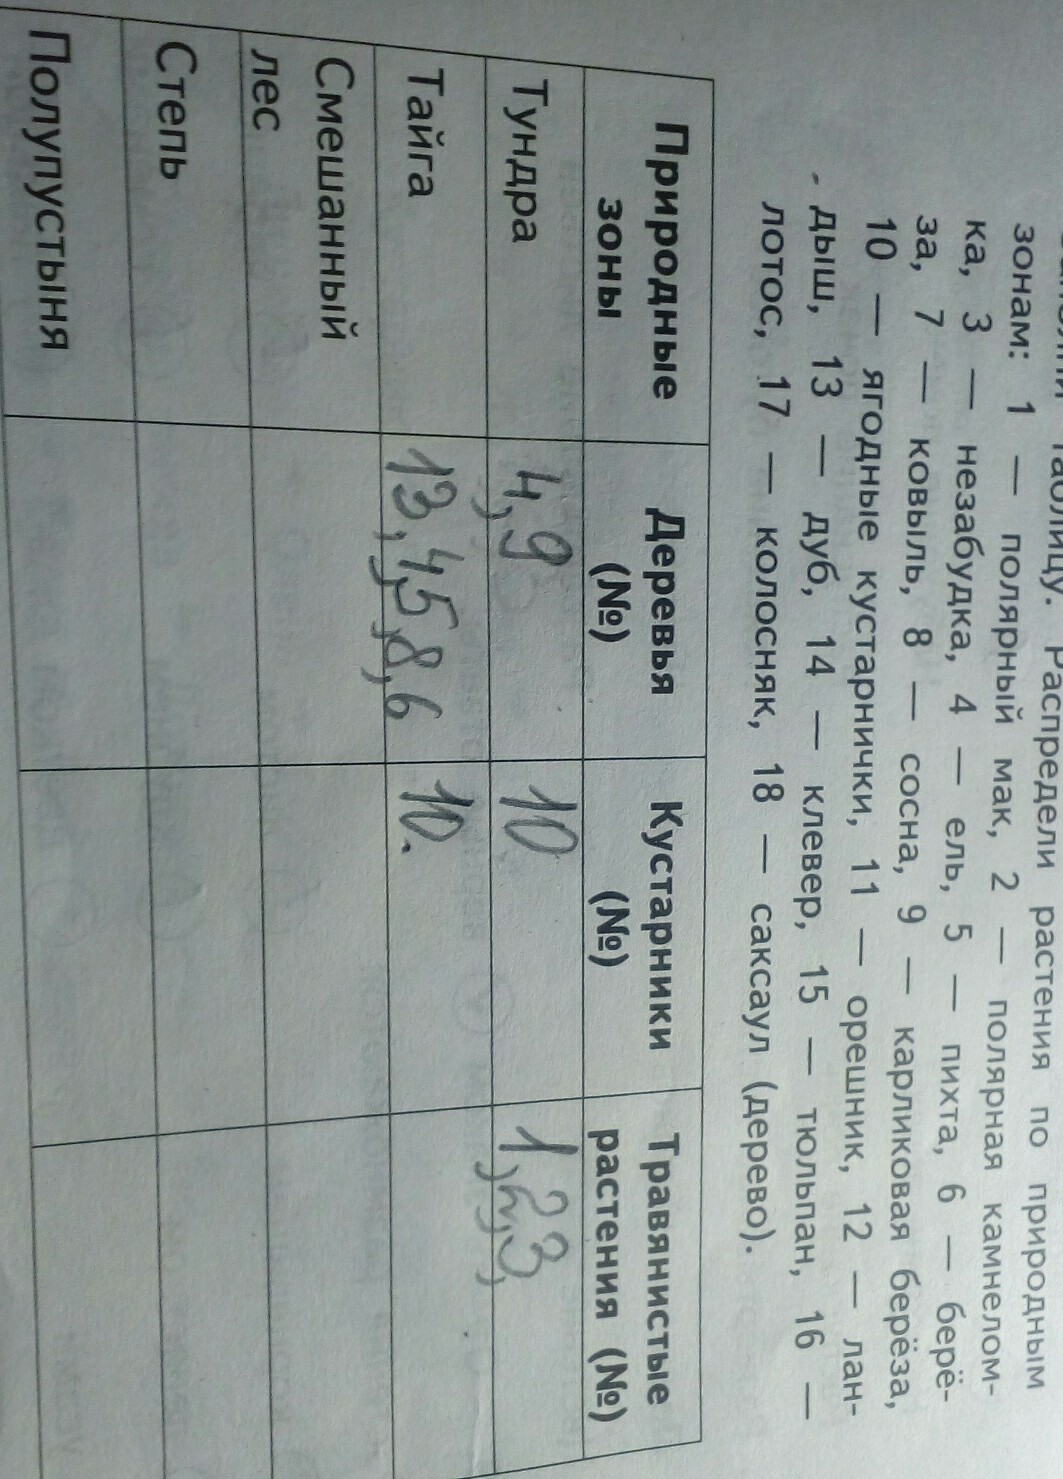 таблицу. Распредели растения по природным
зонам: 1 — полярный мак, 2 — полярная камнелом-
ка, 3 — незабудка, 4 — ель, 5 — пихта, 6 — берё-
за, 7 — ковыль, 8 — сосна, 9 — карликовая берёза,
10 — ягодные кустарнички, 11 — орешник, 12 — лан-
дыш, 13 — дуб, 14 — клевер, 15 — тюльпан, 16 —
лотос, 17 — колосняк, 18 — саксаул (дерево).
Природные зоны Деревья (№) Кустарники (№) Травянистые растения (№)
Тундра 4,9 10 1,2,3,
Тайга 13,4,5,8,6 10.
Смешанный лес
Степь
Полупустыня